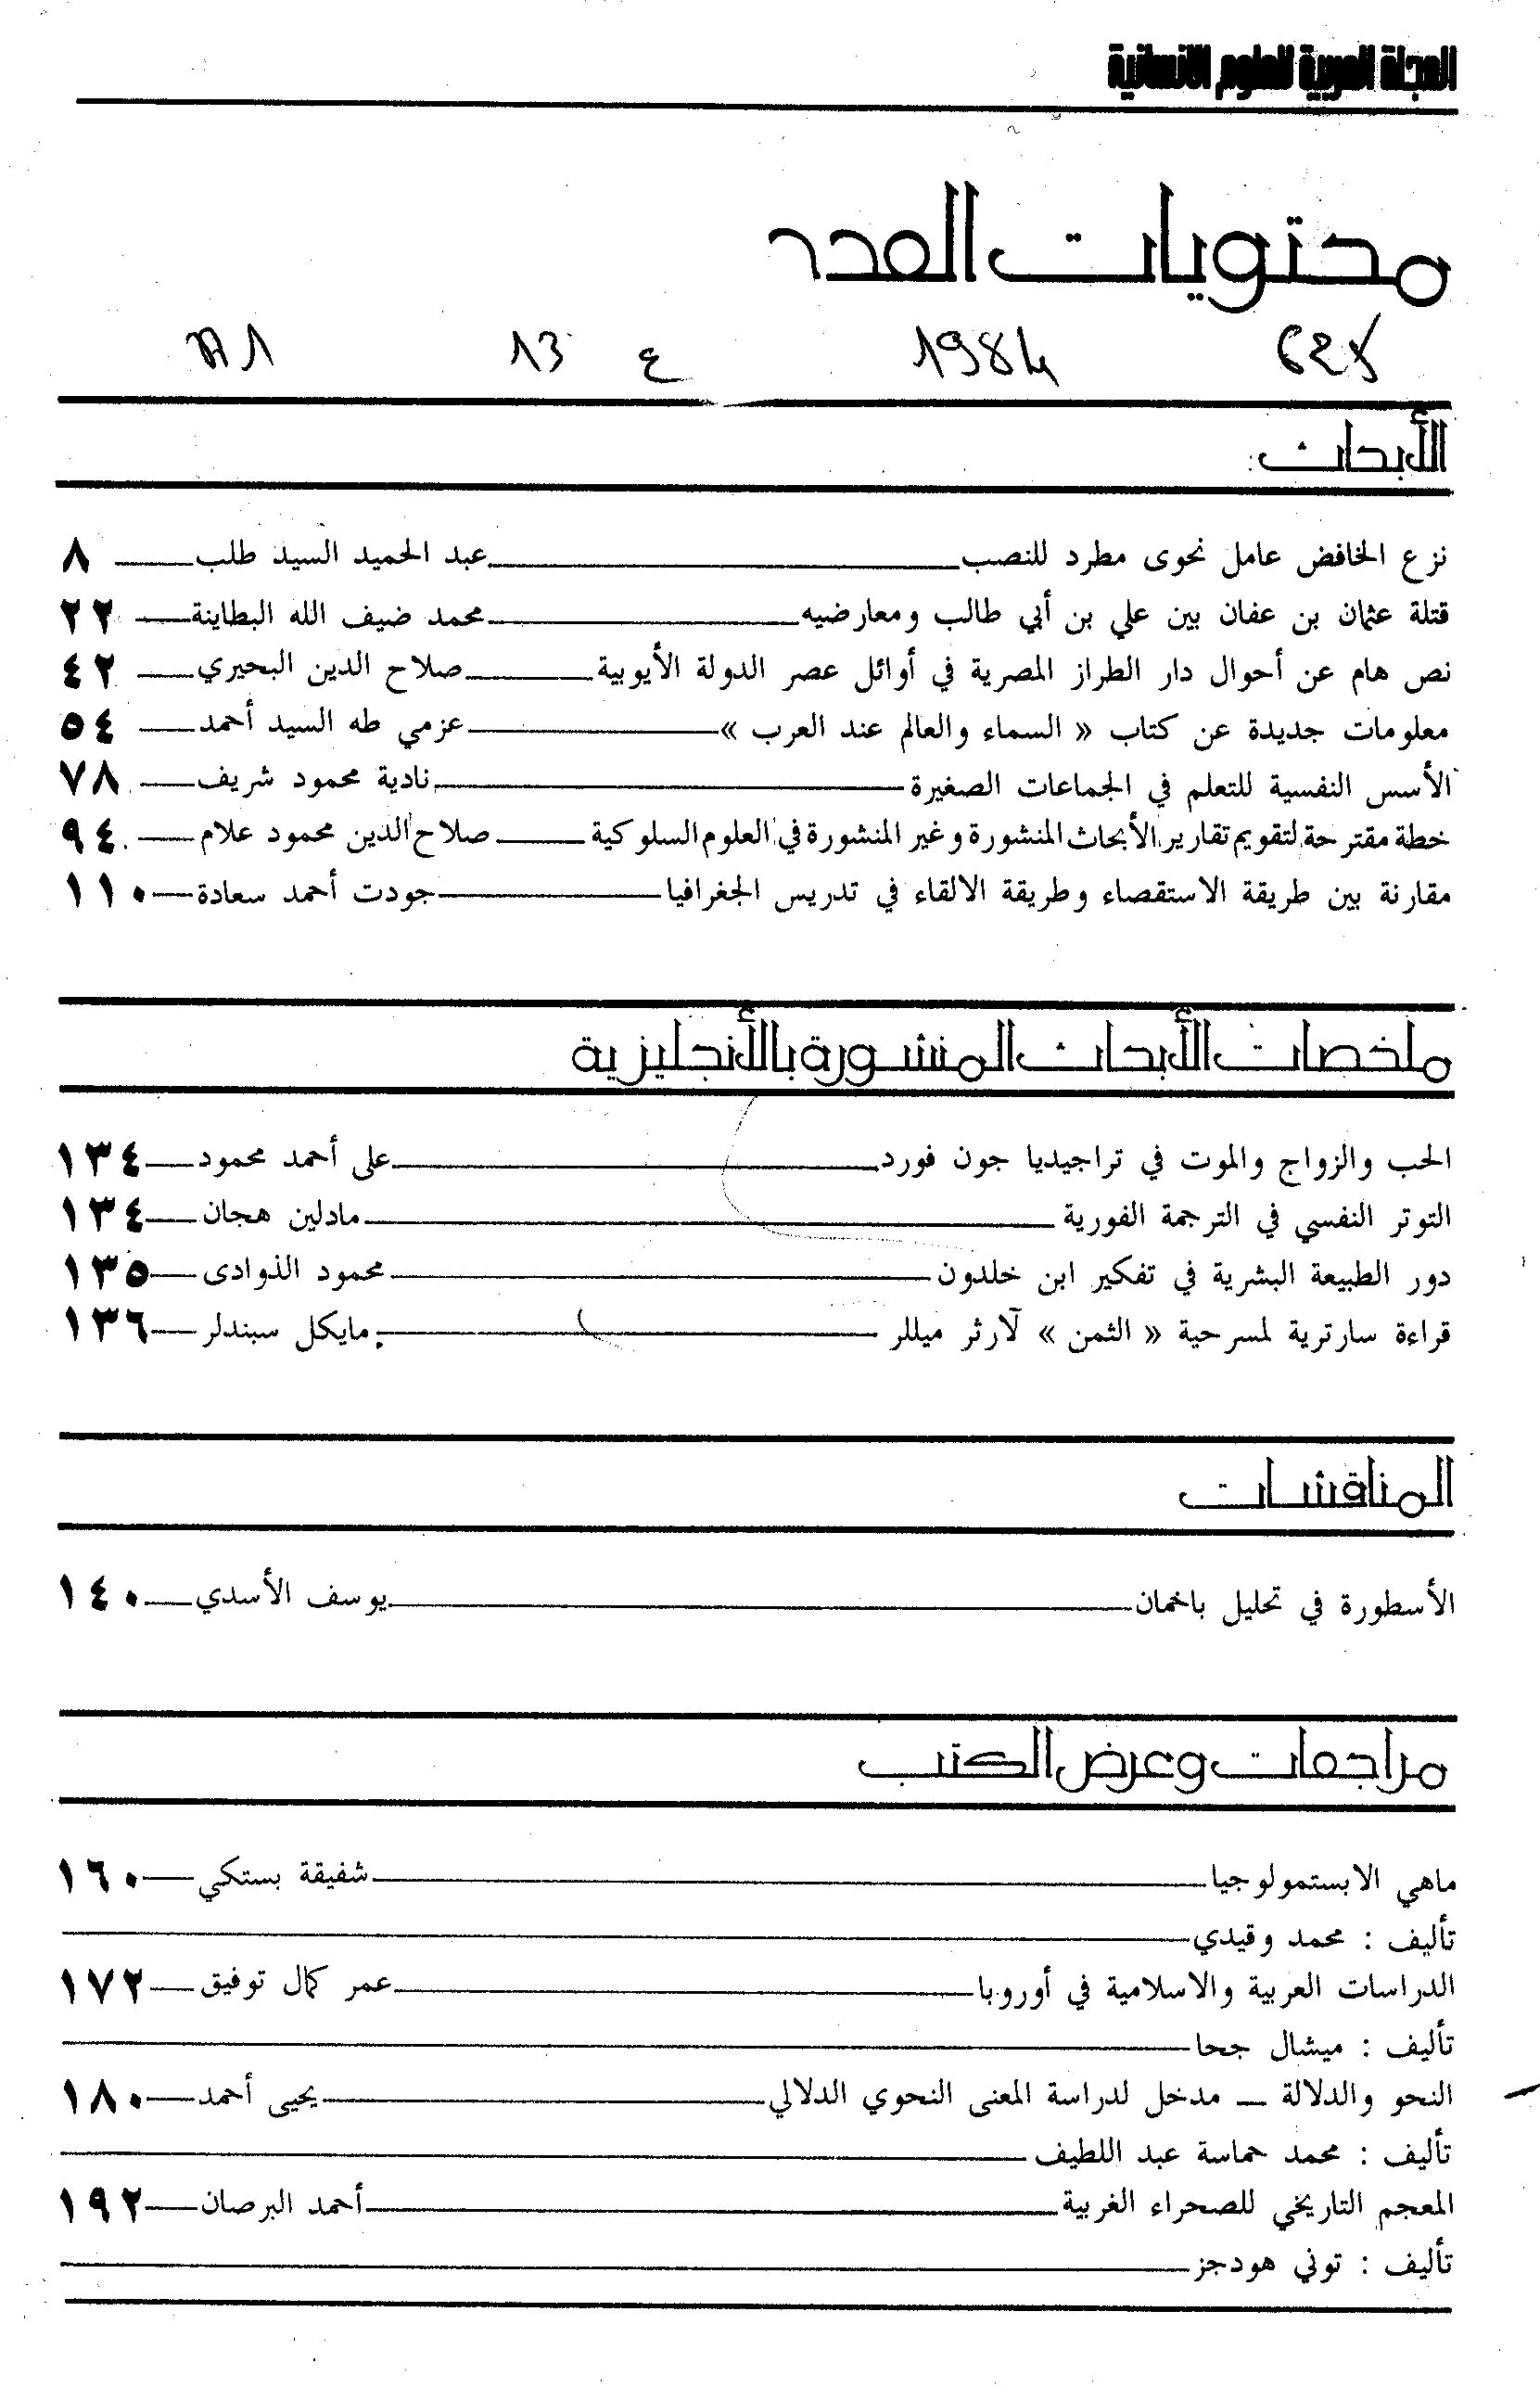 المجلة العربية للعلوم الانسانية
محتويات العدد
1984 ع 13
الأبحاث:
نزع الخافض عامل نحوى مطرد للنصب عبد الحميد السيد طلب ٨
قتلة عثمان بن عفان بين علي بن أبي طالب ومعارضيه محمد ضيف الله البطاينة ٢٢
نص هام عن أحوال دار الطراز المصرية في أوائل عصر الدولة الأيوبية صلاح الدين البحيري ٤٢
معلومات جديدة عن كتاب « السماء والعالم عند العرب » عزمي طه السيد أحمد ٥٤
الأسس النفسية للتعلم في الجماعات الصغيرة نادية محمود شريف ٧٨
خطة مقترحة لتقويم تقارير الأبحاث المنشورة وغير المنشورة في العلوم السلوكية صلاح الدين محمود علام ٩٤
مقارنة بين طريقة الاستقصاء وطريقة الالقاء في تدريس الجغرافيا جودت أحمد سعادة ١١٠
ملخصات الأبحاث المنشورة بالأنجليزية
الحب والزواج والموت في تراجيديا جون فورد على أحمد محمود ١٣٤
التوتر النفسي في الترجمة الفورية مادلين هجان ١٣٤
دور الطبيعة البشرية في تفكير ابن خلدون محمود الذوادى ١٣٥
قراءة سارترية لمسرحية « الثمن » لآرثر ميللر مايكل سبندلر ١٣٦
المناقشات
الأسطورة في تحليل باخمان يوسف الأسدي ١٤٠
مراجعات وعرض الكتب
ماهي الابستمولوجيا شفيقة بستكي ١٦٠
تأليف : محمد وقيدي
الدراسات العربية والاسلامية في أوروبا عمر كمال توفيق ١٧٢
تأليف : ميشال جحا
النحو والدلالة ــ مدخل لدراسة المعنى النحوي الدلالي يحيى أحمد ١٨٠
تأليف : محمد حماسة عبد اللطيف
المعجم التاريخي للصحراء الغربية أحمد البرصان ١٩٢
تأليف : توني هودجز